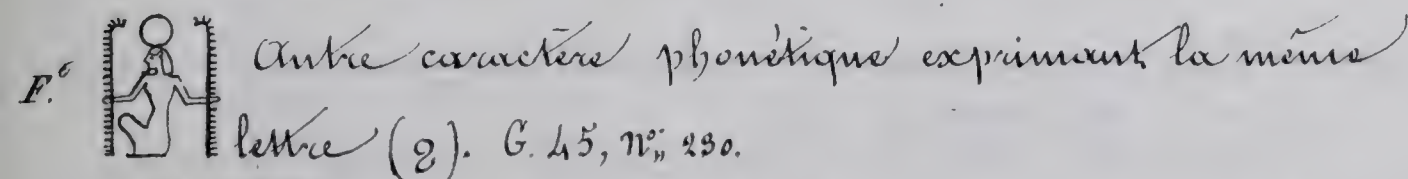 F.<sup>e</sup> Autre caractère phonétique exprimant la même
lettre (ϩ). G. 45, n°; 230.